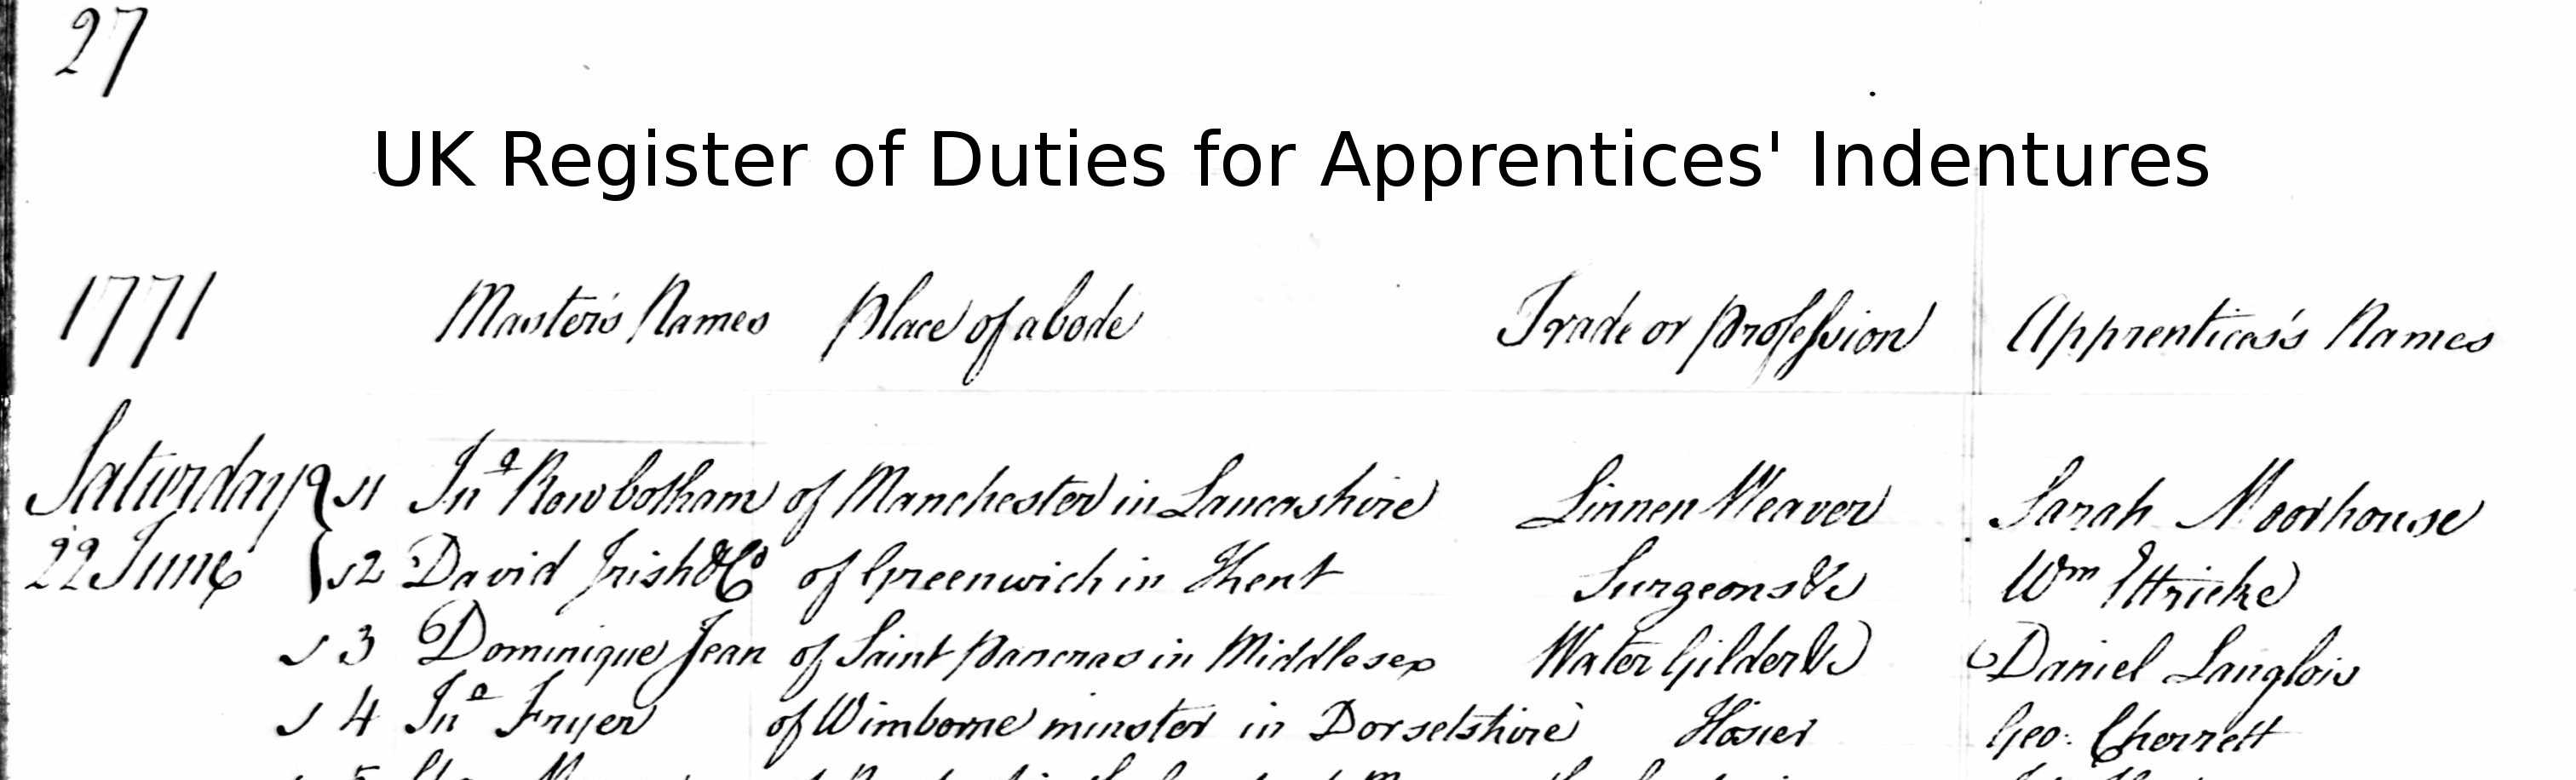 27
UK Register of Duties for Apprentices' Indentures
1771 Master's Names Place of abode Trade or Profession Apprentices's Names
Saturday 1 Jnᵒ Rowbotham of Manchester in Lancashire Linnen Weaver Sarah Moorhouse
22 June 2 David Irish & Cᵒ of Greenwich in Kent Surgeons &c Wm Ettricke
3 Dominique Jean of Saint Pancras in Middlesex Water Gilder &c Daniel Langlois
4 Jnᵒ Fryer of Wimborne minster in Dorsetshire Hosier Geo: Cherrett
5